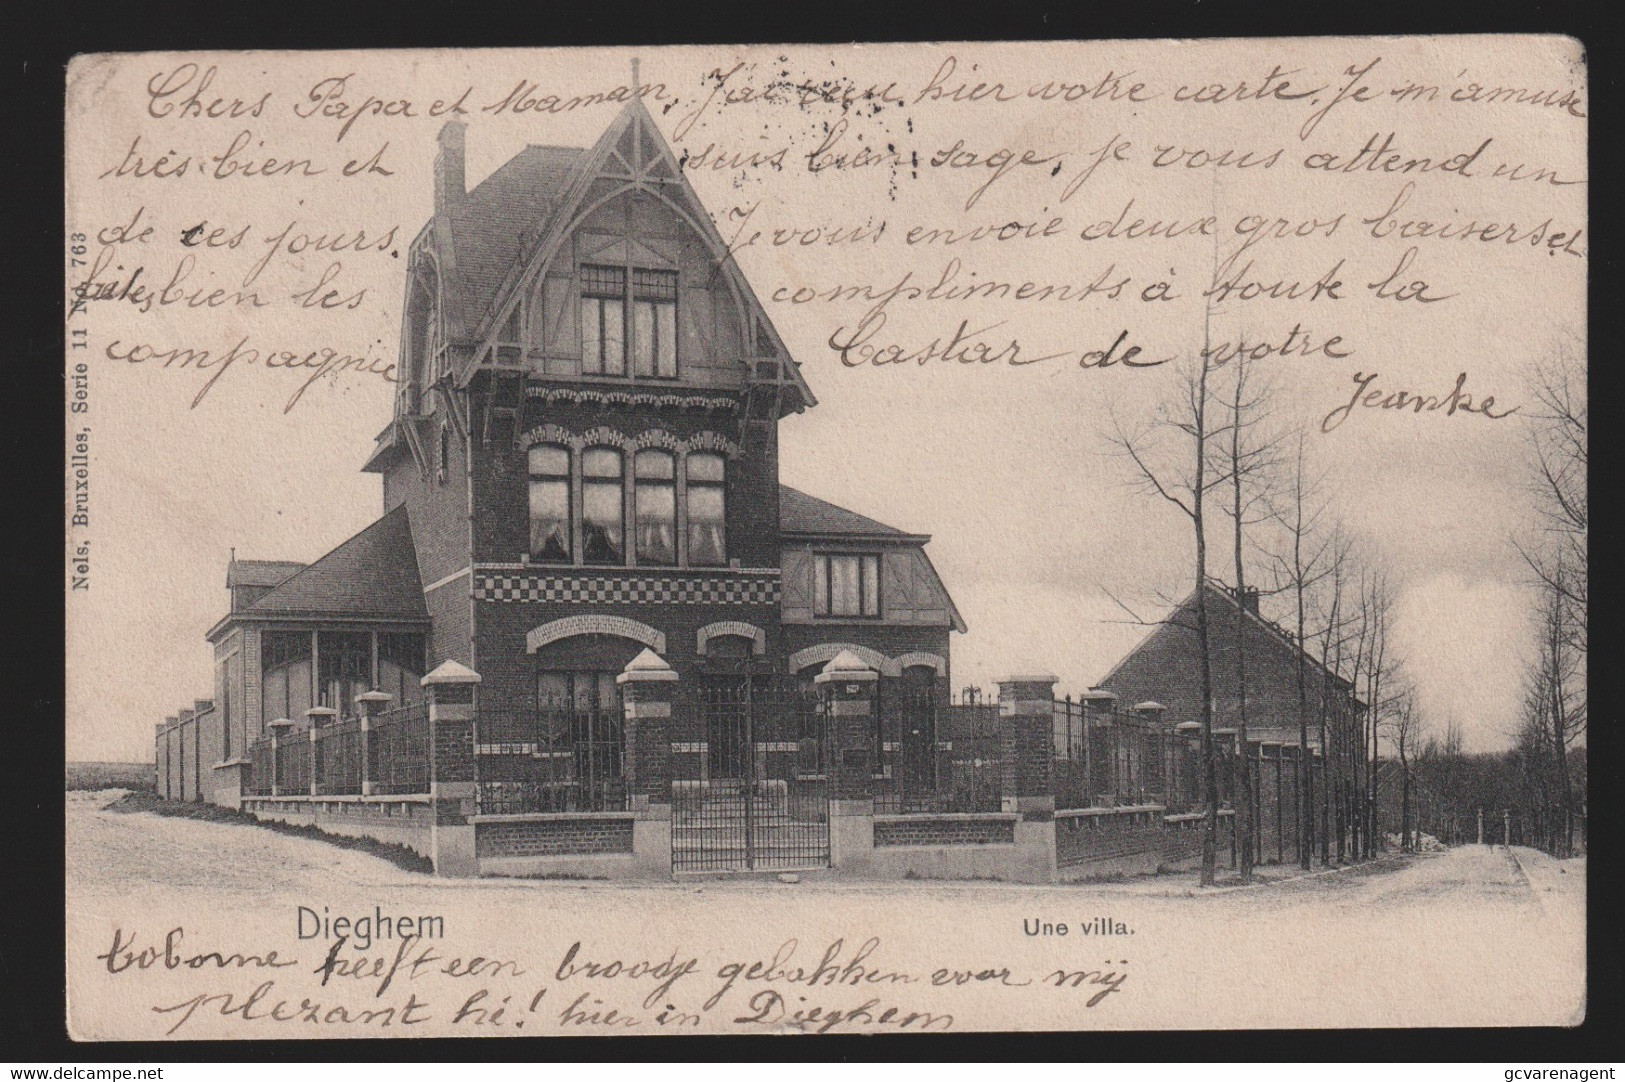 Chers Papa et Maman, J'ai reçu hier votre carte. Je m'amuse
très bien et suis bien sage, je vous attend un
de ces jours. Je vous envoie deux gros baisers et
bien les compliments à toute la
compagnie Castar de votre
Jeanke
Nels, Bruxelles, Serie 11 No 763
Dieghem
Une villa.
heeft een broodje gebakken voor mij
plezant hé! hier in Dieghem
gcvarenagent